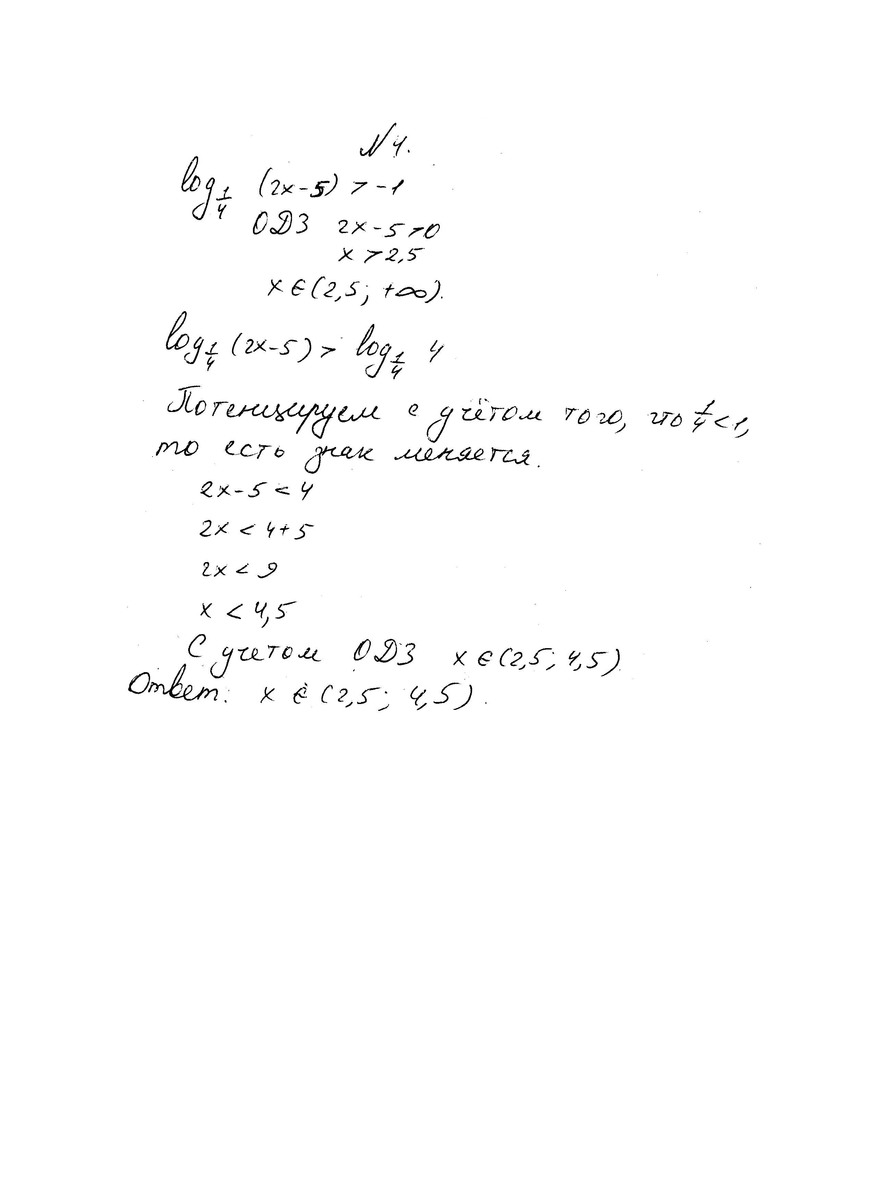 N 4.
log 1/4 (2x-5) > -1
ОДЗ 2x-5>0
x > 2,5
x ∈ (2,5; +∞).
log 1/4 (2x-5) > log 1/4 4
Потенцируем с учётом того, что 1/4 < 1,
то есть знак меняется.
2x-5 < 4
2x < 4+5
2x < 9
x < 4,5
С учетом ОДЗ x ∈ (2,5; 4,5)
Ответ: x ∈ (2,5; 4,5).